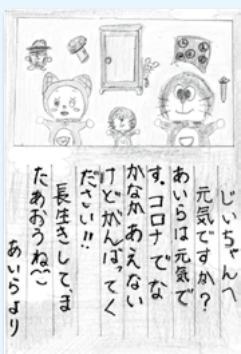 じいちゃんへ
元気ですか?
あいらは元気で
す。コロナでな
かなかあえない
けどがんばってく
ださい!!
長生きして、ま
たあおうね^^
あいらより